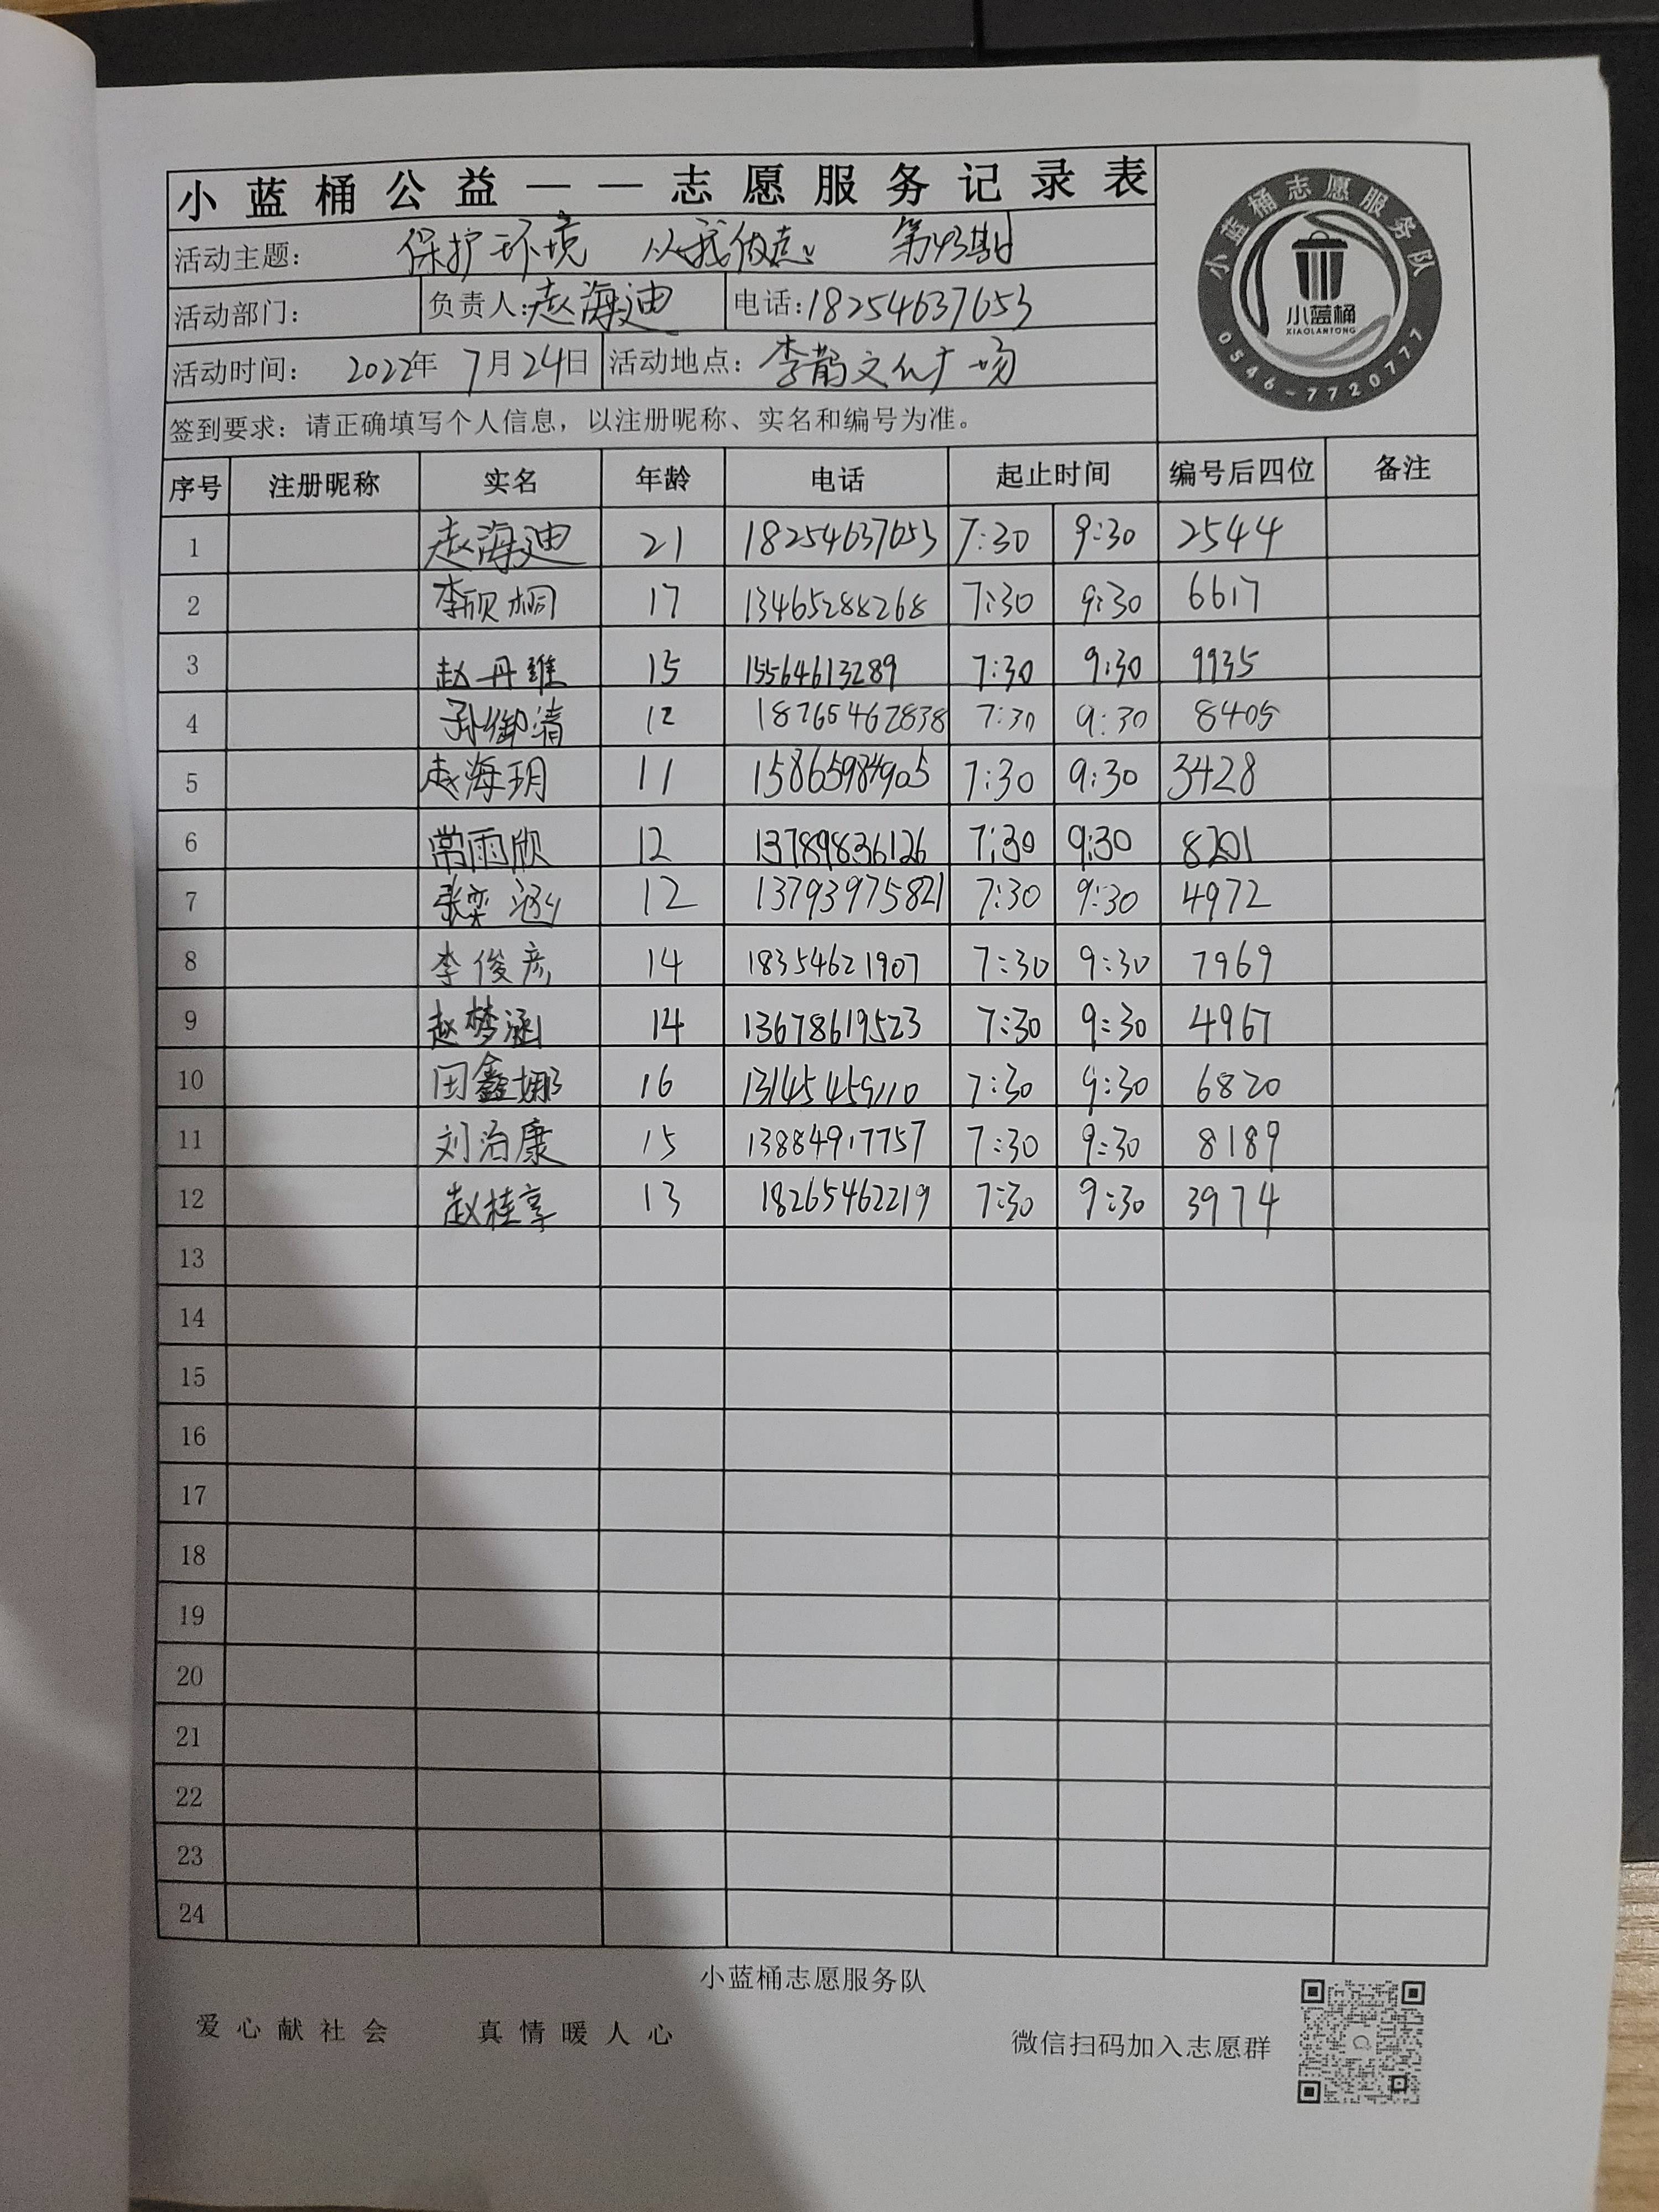 小蓝桶公益——志愿服务记录表
活动主题: 保护环境 从我做起 第43期
活动部门: 负责人:赵海迪 电话:18254637653
活动时间: 2022年 7月24日 活动地点: 李鹊文化广场
签到要求: 请正确填写个人信息, 以注册昵称、实名和编号为准。
小蓝桶志愿服务队
小蓝桶
XIAOLANTONG
0546-7720777
序号 注册昵称 实名 年龄 电话 起止时间 编号后四位 备注
1 赵海迪 21 18254637653 7:30 9:30 2544
2 李欣桐 17 13465288268 7:30 9:30 6617
3 赵丹维 15 15564613289 7:30 9:30 9935
4 孙御清 12 18765462838 7:30 9:30 8405
5 赵海玥 11 15865984905 7:30 9:30 3428
6 常雨欣 12 13789836126 7:30 9:30 8201
7 张奕涵 12 13793975821 7:30 9:30 4972
8 李俊彦 14 18354621907 7:30 9:30 7969
9 赵梦涵 14 13678619523 7:30 9:30 4967
10 田鑫娜 16 13145459110 7:30 9:30 6820
11 刘治康 15 13884917757 7:30 9:30 8189
12 赵桂享 13 18265462219 7:30 9:30 3974
13
14
15
16
17
18
19
20
21
22
23
24
小蓝桶志愿服务队
爱心献社会 真情暖人心 微信扫码加入志愿群